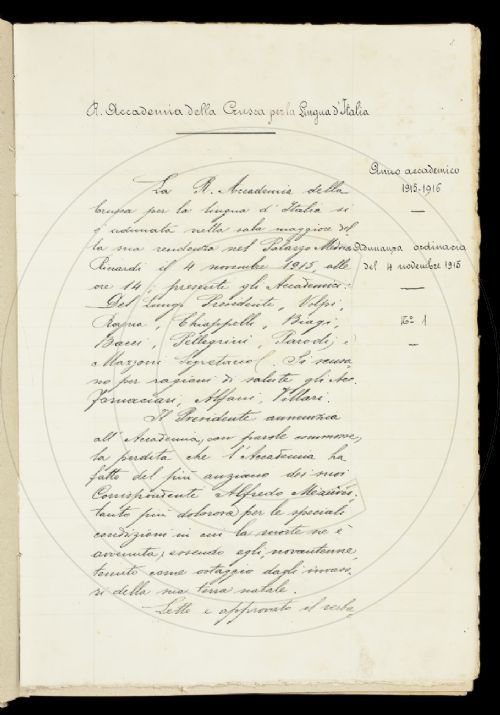 R. Accademia della Crusca per la Lingua d'Italia
Anno accademico
1915-1916
Adunanza ordinaria
del 4 novembre 1915
N.° 1
La R. Accademia della
Crusca per la lingua d'Italia si
è adunata nella sala maggiore del
la sua residenza nel Palazzo Medici
Riccardi il 4 novembre 1915, alle
ore 14; presenti gli Accademici:
Del Lungo Presidente, Volpi,
Rajna, Chiappelli, Biagi,
Bacci, Pellegrini, Parodi; e
Mazzoni Segretario. Si scusa-
no per ragioni di salute gli Acc.
Fornaciari, Alfani, Villari.
Il Presidente annunzia
all'Accademia, con parole commosse,
la perdita che l'Accademia ha
fatto del più anziano dei suoi
Corrispondenti Alfredo
tanto più dolorosa per le speciali
condizioni in cui la morte ne è
avvenuta; essendo egli, novantenne,
tenuto come ostaggio dagli invaso-
ri della sua terra natale.
Letto e approvato il verba-